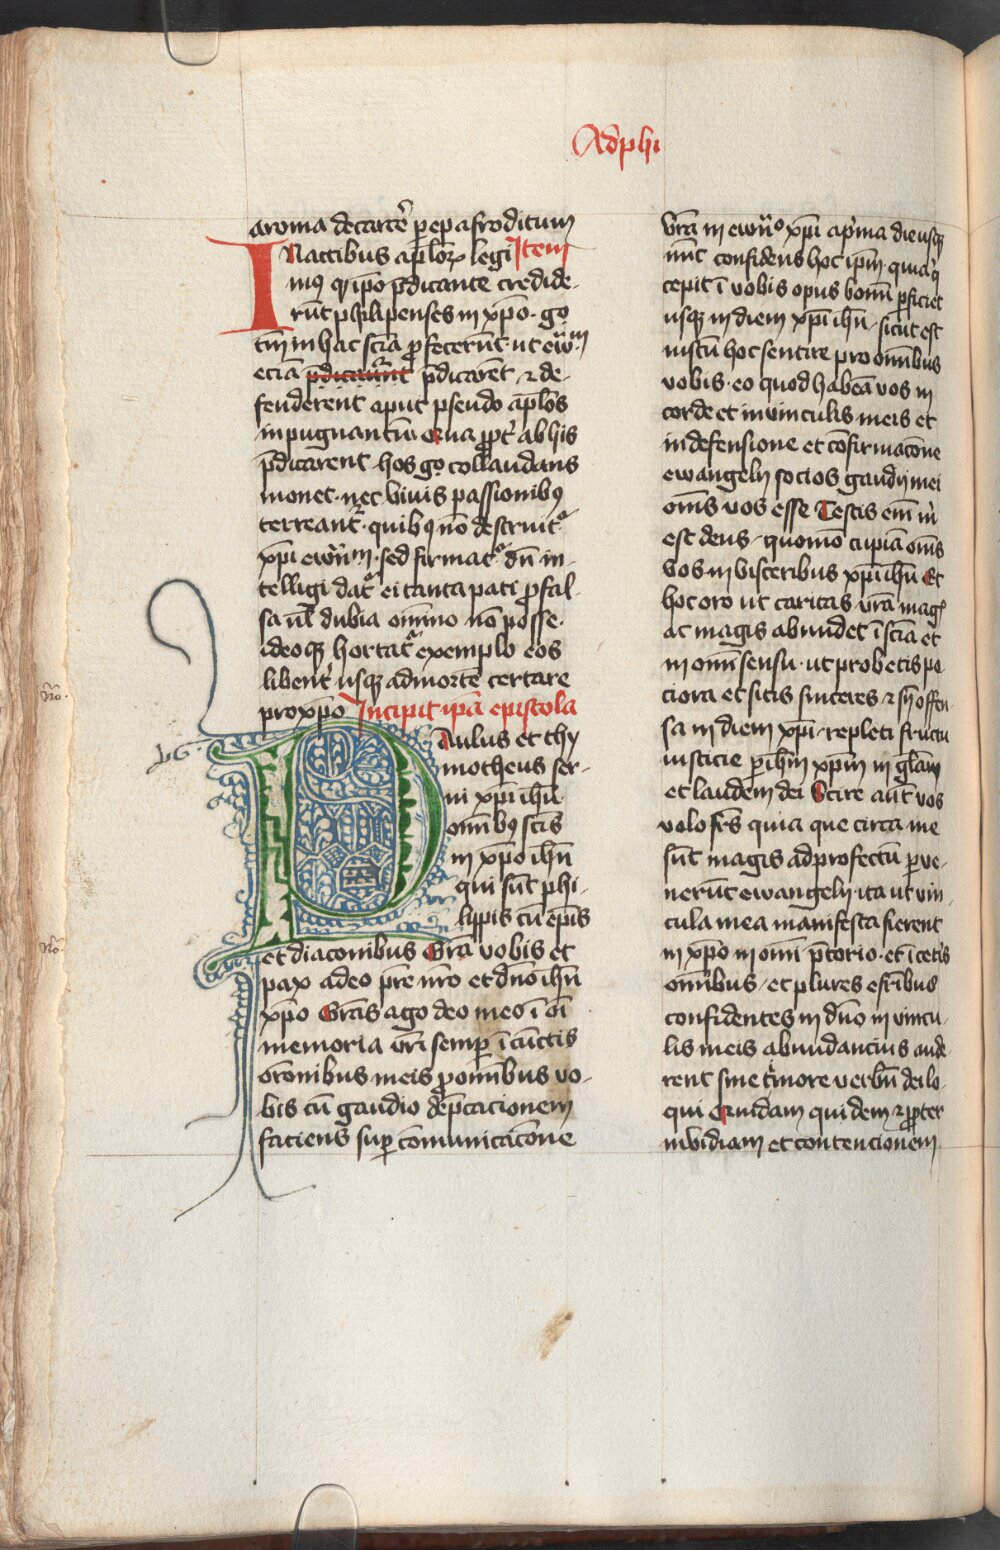 Ad phi
aroma de carcē p epafroditum
In actibus aplōꝝ legi Item
mꝰ qꝛ ip̄o p̄dicante credide-
rūt philipenses in xp̄o · go
tm̄ in hac sciā ꝓfecerūt · ut ewᵐ
eciā p̄dicarēt ⁊ de-
fenderent aput pseudo aplōs
inpugnantiū qua ꝓpt̄ ab his
p̄dicarent · hos go collaudans
monet · nec bivis passionibꝰ
terreantᷣ · quibꝰ nō destruitᷣ
xpi ewn̄m · sed firmatᷣ dn̄ in-
telligi datᷣ ei tanta pati ꝓ fal-
sa ul̄ dubia om̄ino nō posse ·
ideoqꝫ hortatᷣ exemplo eos
libent̄ usqꝫ ad mortē certare
pro xp̄o Incipit ipā epistola
Paulus et thy
motheus ser-
ui xpi ihū
omībꝰ scīs
in xp̄o ihū
qui sūt phi-
lippis cū ep̄is
et diaconibus Grā vobis et
pax a deo pr̄e nr̄o et dn̄o ihū
xp̄o Grās ago deo meo ī oī
memoria vr̄i semp̄ ī cūctis
orōnibus meis pro omībus vo-
bis cū gaudio dep̄cacionem
faciens sup̄ cōmunicacōne
vr̄a in ewn̄o xpi a p̄ma die usqꝫ
nūc confidens hoc ip̄m · quia q̄
cepit ī vobis opus bonū ꝑficiet
usqꝫ in diem xpi ihū · sicut est
iustū hoc sentire pro omībus
vobis · eo quod habeā vos in
corde et in vinculis meis et
in defensione et cōfirmacōne
ewangelij socios gaudij mei
om̄s vos esse Testis em̄ m̄
est deus · quomō cupiā om̄s
vos in visceribus xpi ihū Et
hoc oro ut caritas vr̄a magꝭ
ac magis abundet ī sciā et
in omī sensu · ut probetis po
ciora et sitis sinceres ⁊ sn̄ offen
sa in diem xpi · repleti fructu
iusticie p ihm̄ xpm̄ in glām
et laudem dei Scire aūt vos
volo frs̄ quia que circa me
sūt magis ad profectū ꝑve-
nerūt ewangelij · ita ut vin
cula mea manifesta fierent
in xp̄o in omī p̄torio · et ī cetīs
omībus · et plures e fr̄ibus
confidentes in dn̄o in vincu-
lis meis abundancius aude-
rent sine timore verbū dei lo-
qui Quidam quidem ⁊ ꝓpter
invidiam et contencionem